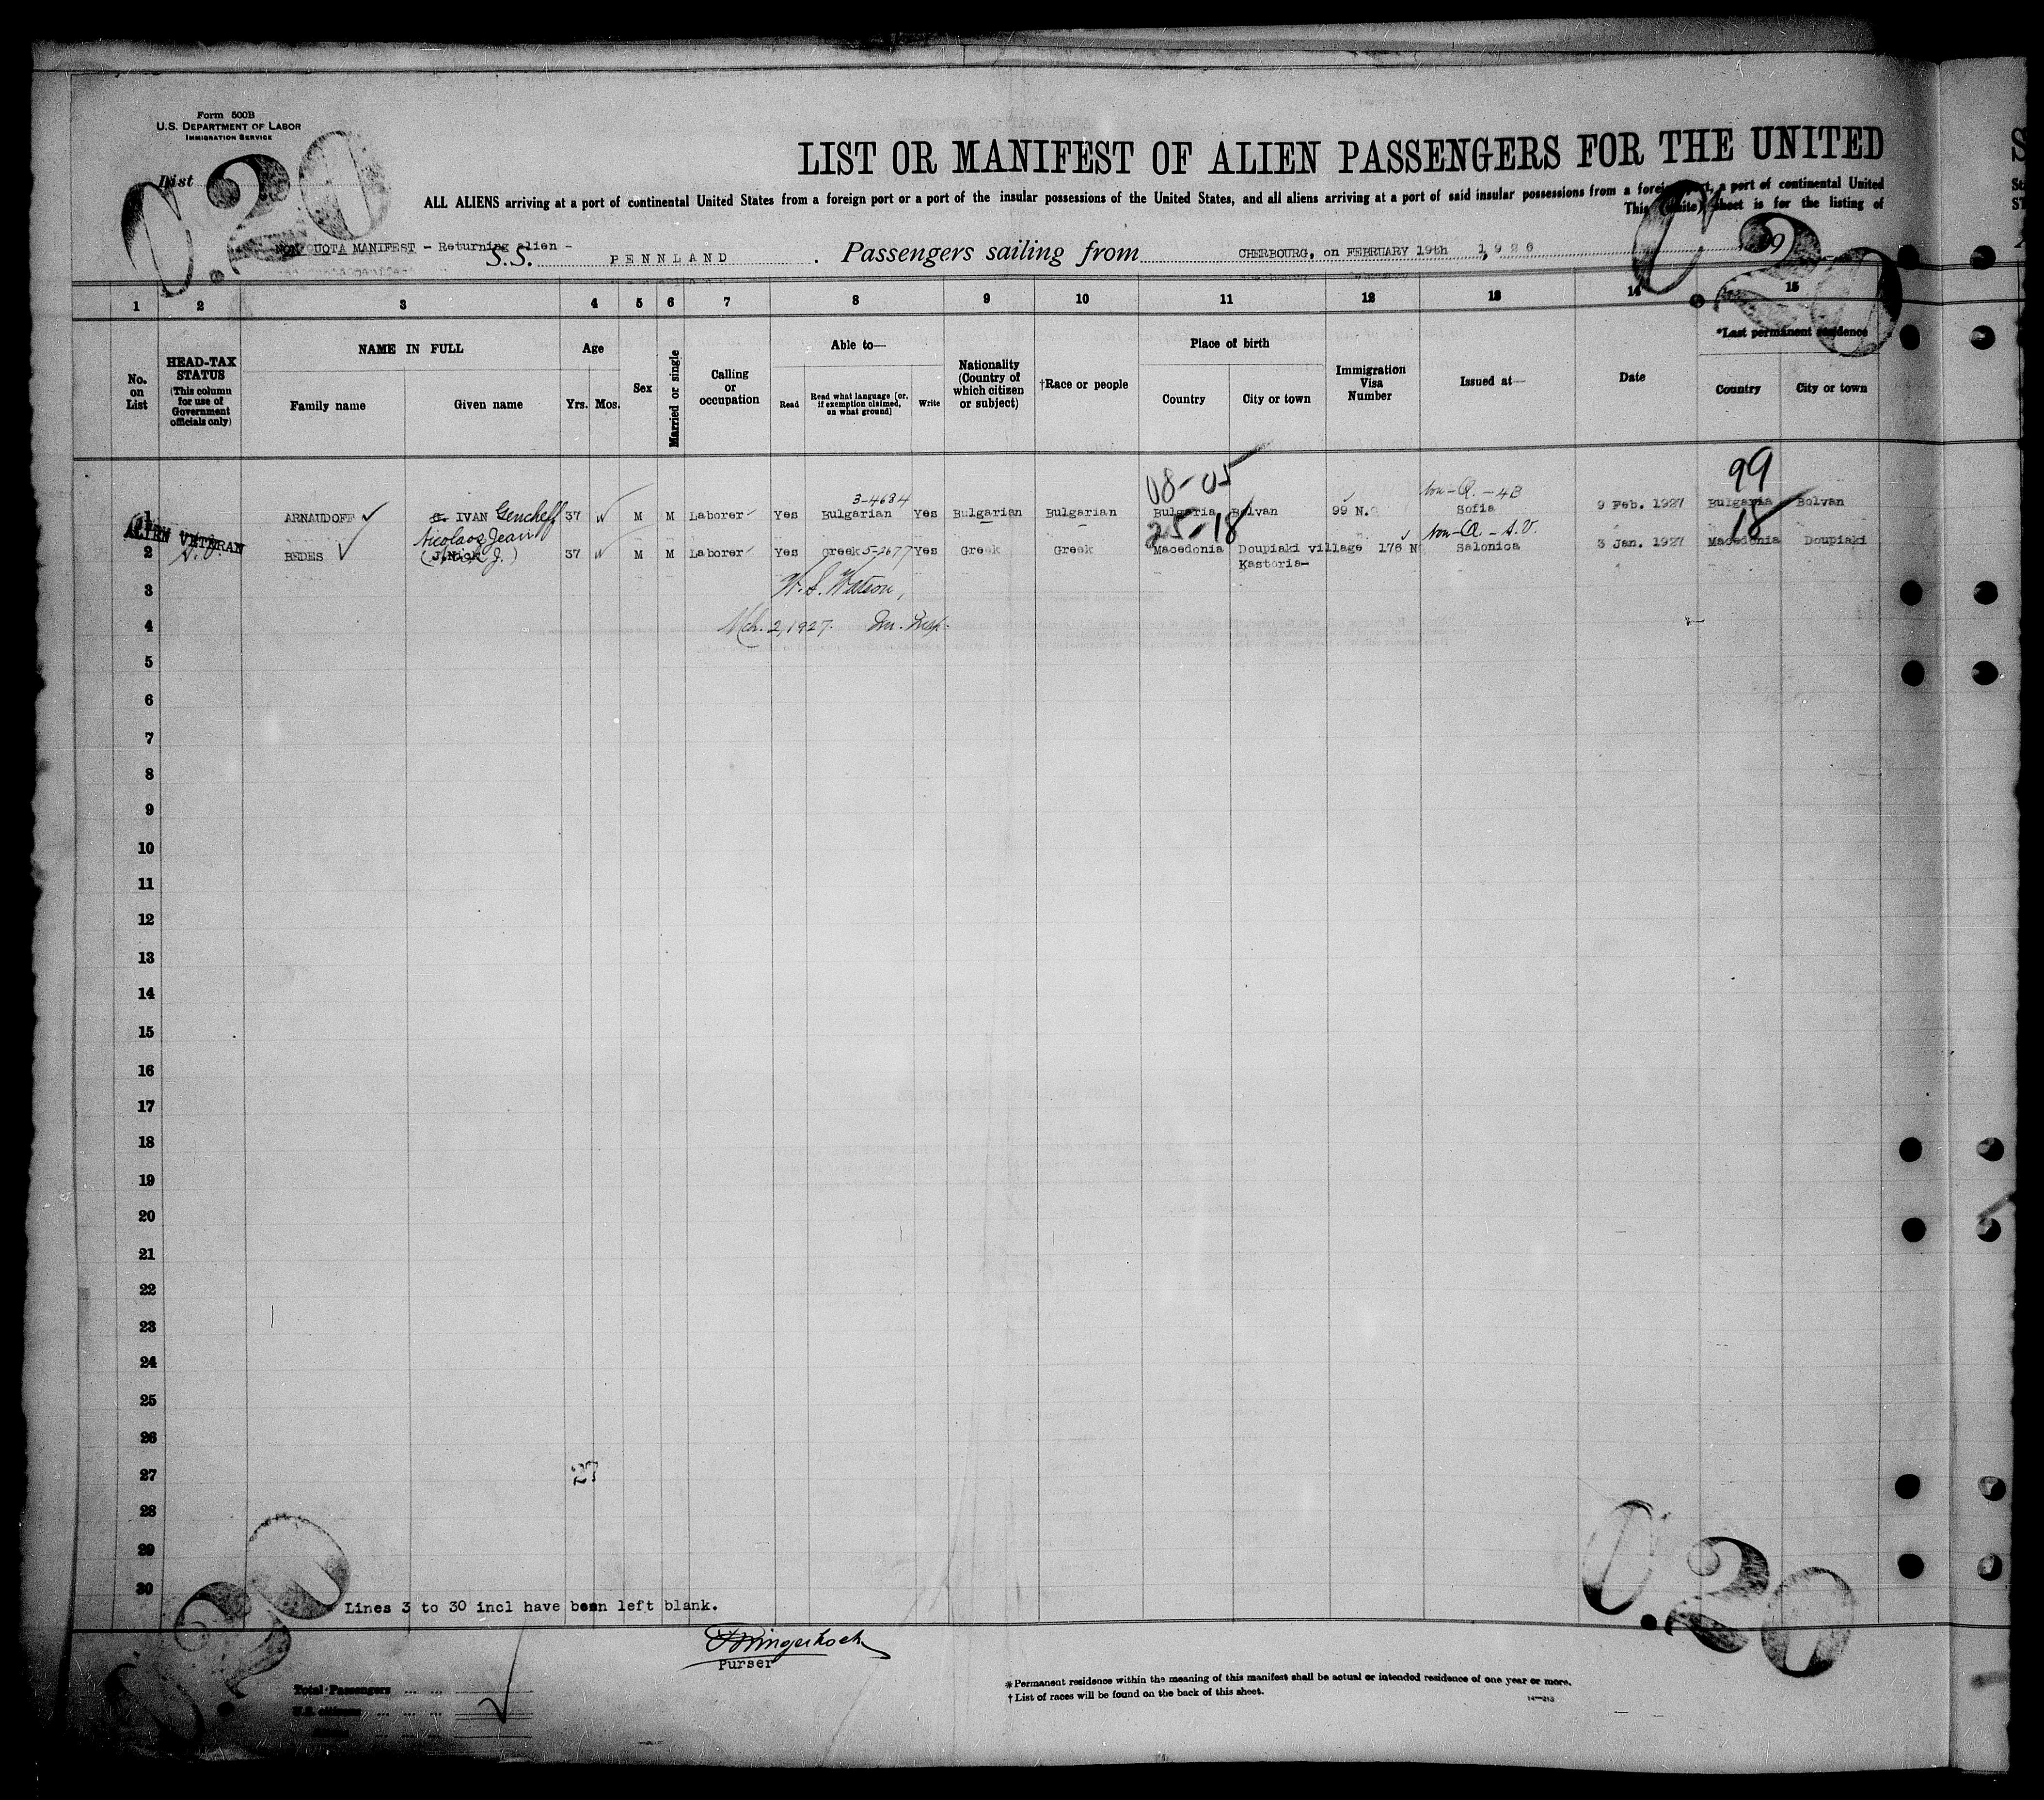 Form 500B
U.S. DEPARTMENT OF LABOR
IMMIGRATION SERVICE
List
C.20
C.20
LIST OR MANIFEST OF ALIEN PASSENGERS FOR THE UNITED
ALL ALIENS arriving at a port of continental United States from a foreign port or a port of the insular possessions of the United States, and all aliens arriving at a port of said insular possessions from a foreign port, a port of continental United
This (white) sheet is for the listing of
NON QUOTA MANIFEST - Returning alien -
S.S. PENNLAND. Passengers sailing from CHERBOURG, on FEBRUARY 19th 1,926 19
1 2 3 4 5 6 7 8 9 10 11 12 13 14 15
No. on List
HEAD-TAX STATUS (This column for use of Government officials only)
NAME IN FULL
Family name Given name
Age
Yrs. Mos.
Sex
Married or single
Calling or occupation
Able to—
Read Read what language [or, if exemption claimed, on what ground] Write
Nationality (Country of which citizen or subject)
†Race or people
Place of birth
Country City or town
Immigration Visa Number
Issued at—
Date
*Last permanent residence
Country City or town
08-05 99
3-4684 Non-Q. - 4B
1 ARNAUDOFF ✓ IVAN Gencheff 37 M M Laborer Yes Bulgarian Yes Bulgarian Bulgarian Bulgaria Bolvan 99 N. Sofia 9 Feb. 1927 Bulgaria Bolvan
ALIEN VETERAN Nicolaos Jean 25-18 Non-Q. - A.V. 18
2 A.V. BEDES ✓ (Nick J.) 37 M M Laborer Yes Greek 5-2677 Yes Greek Greek Macedonia Doupiaki village 176 N Salonica 3 Jan. 1927 Macedonia Doupiaki
Kastoria-
3 W. S. Watson,
4 Mch. 2, 1927. Im. Insp.
5
6
7
8
9
10
11
12
13
14
15
16
17
18
19
20
21
22
23
24
25
26
27 27
28
29
30
Lines 3 to 30 incl have been left blank.
Purser
Total Passengers
U.S. citizens
C.20
C.20
*Permanent residence within the meaning of this manifest shall be actual or intended residence of one year or more.
†List of races will be found on the back of this sheet.
14—213